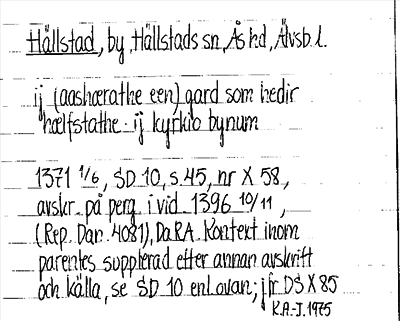 Hällstad, by, Hällstads sn, Ås hd, Älvsb. l.
ij (aashærathe een) gard som hedir
hælfstathe. ij kyrkio bynum
1371 1/6, SD 10, s. 45, nr X 58,
avskr. på perg. i vid. 1396 10/11,
(Rep. Dan. 4081), Da RA. Kontext inom
parentes supplerad efter annan avskrift
och källa, se SD 10 enl. ovan; jfr DS X 85
K.A-J. 1975